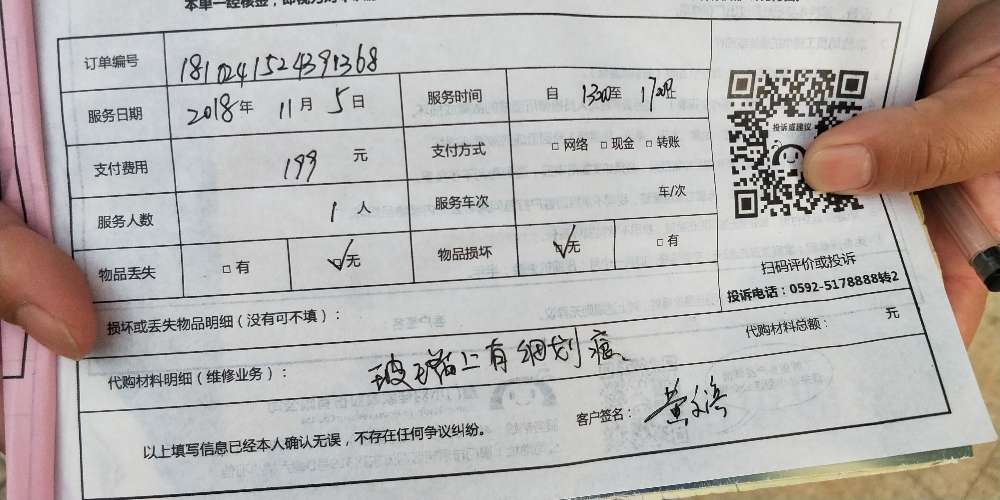 本单一经核金，即视为
订单编号 1810241524391368
服务日期 2018年 11月 5日 服务时间 自 1300至 1700止
投诉或建议
支付费用 199 元 支付方式 □ 网络 □ 现金 □ 转账
服务人数 1 人 服务车次 车/次
物品丢失 □ 有 ☑无 物品损坏 ☑无 □ 有
扫码评价或投诉
投诉电话：0592-5178888转2
损坏或丢失物品明细（没有可不填）：
代购材料明细（维修业务）： 玻璃上有细划痕、 代购材料总额： 元
以上填写信息已经本人确认无误，不存在任何争议纠纷。 客户签名： 黄